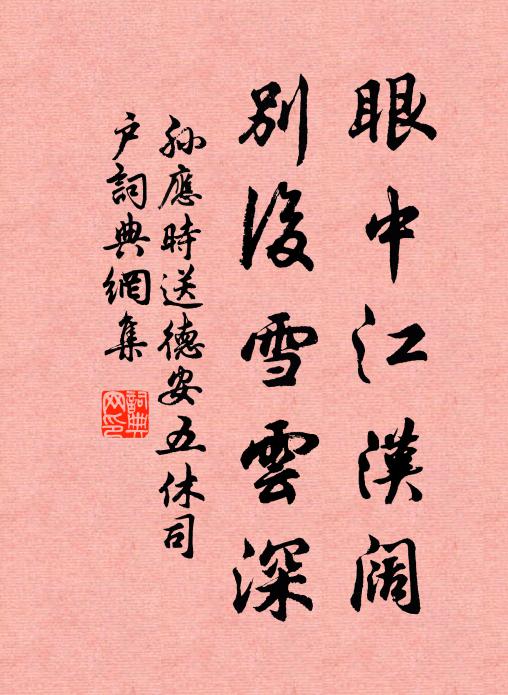 眼中江漢阔
別後雪雲深
孫應時送德安五休司
户詞典網集
詞典网印